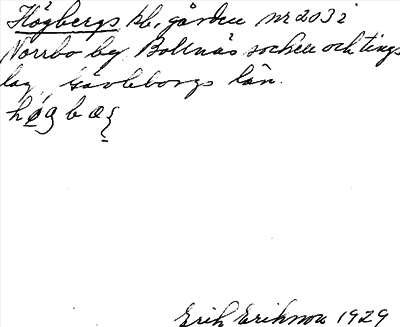 Högbergs kb, gården nr 203 i
Norrbo by Bollnäs socken och tings
lag, Gävleborgs län.
Erik Erikson 1929